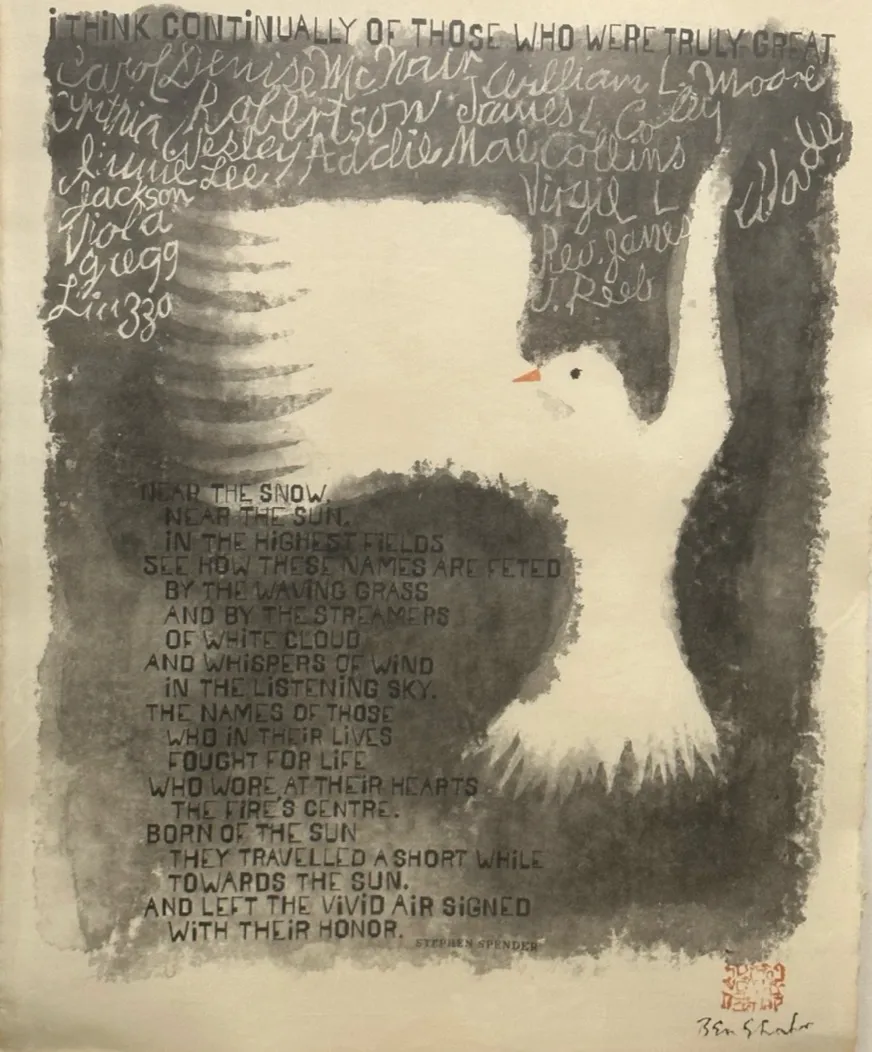 i THiNK CONTiNUALLY OF THOSE WHO WERE TRULY GREAT
Carol Denise McNair William L. Moore
Cynthia Robertson James L. Coley
Wesley Addie Mae Collins
Jimmie Lee
Jackson Virgil L Wade
Viola
gregg Rev. James
Liuzzo J. Reeb
NEAR THE SNOW.
NEAR THE SUN.
iN THE HiGHEST FiELDS
SEE HOW THESE NAMES ARE FETED
BY THE WAViNG GRASS
AND BY THE STREAMERS
OF WHiTE CLOUD
AND WHiSPERS OF WiND
iN THE LiSTENiNG SKY.
THE NAMES OF THOSE
WHO iN THEiR LiVES
FOUGHT FOR LiFE
WHO WORE AT THEiR HEARTS
THE FiRE'S CENTRE.
BORN OF THE SUN
THEY TRAVELLED A SHORT WHiLE
TOWARDS THE SUN.
AND LEFT THE ViViD AiR SiGNED
WiTH THEiR HONOR.
STEPHEN SPENDER
Ben Shahn